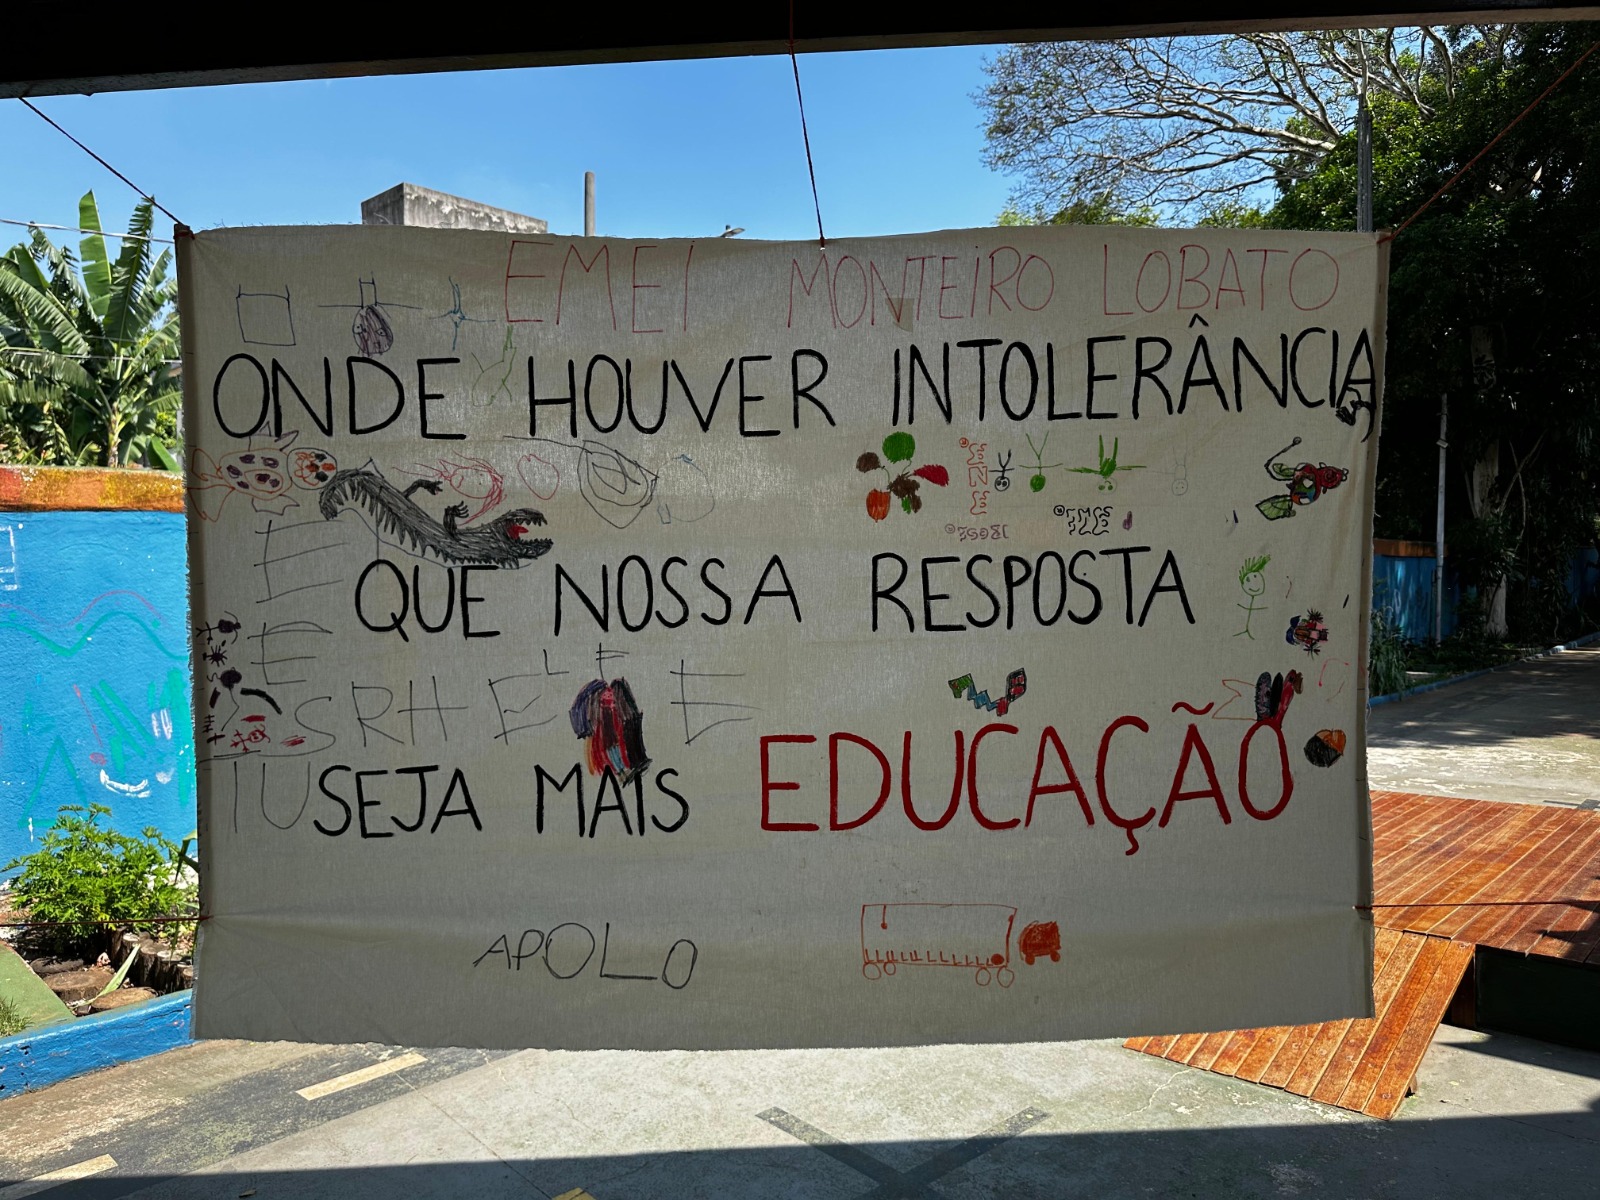 EMEI MONTEIRO LOBATO
ONDE HOUVER INTOLERÂNCIA,
QUE NOSSA RESPOSTA
SEJA MAIS EDUCAÇÃO
APOLO